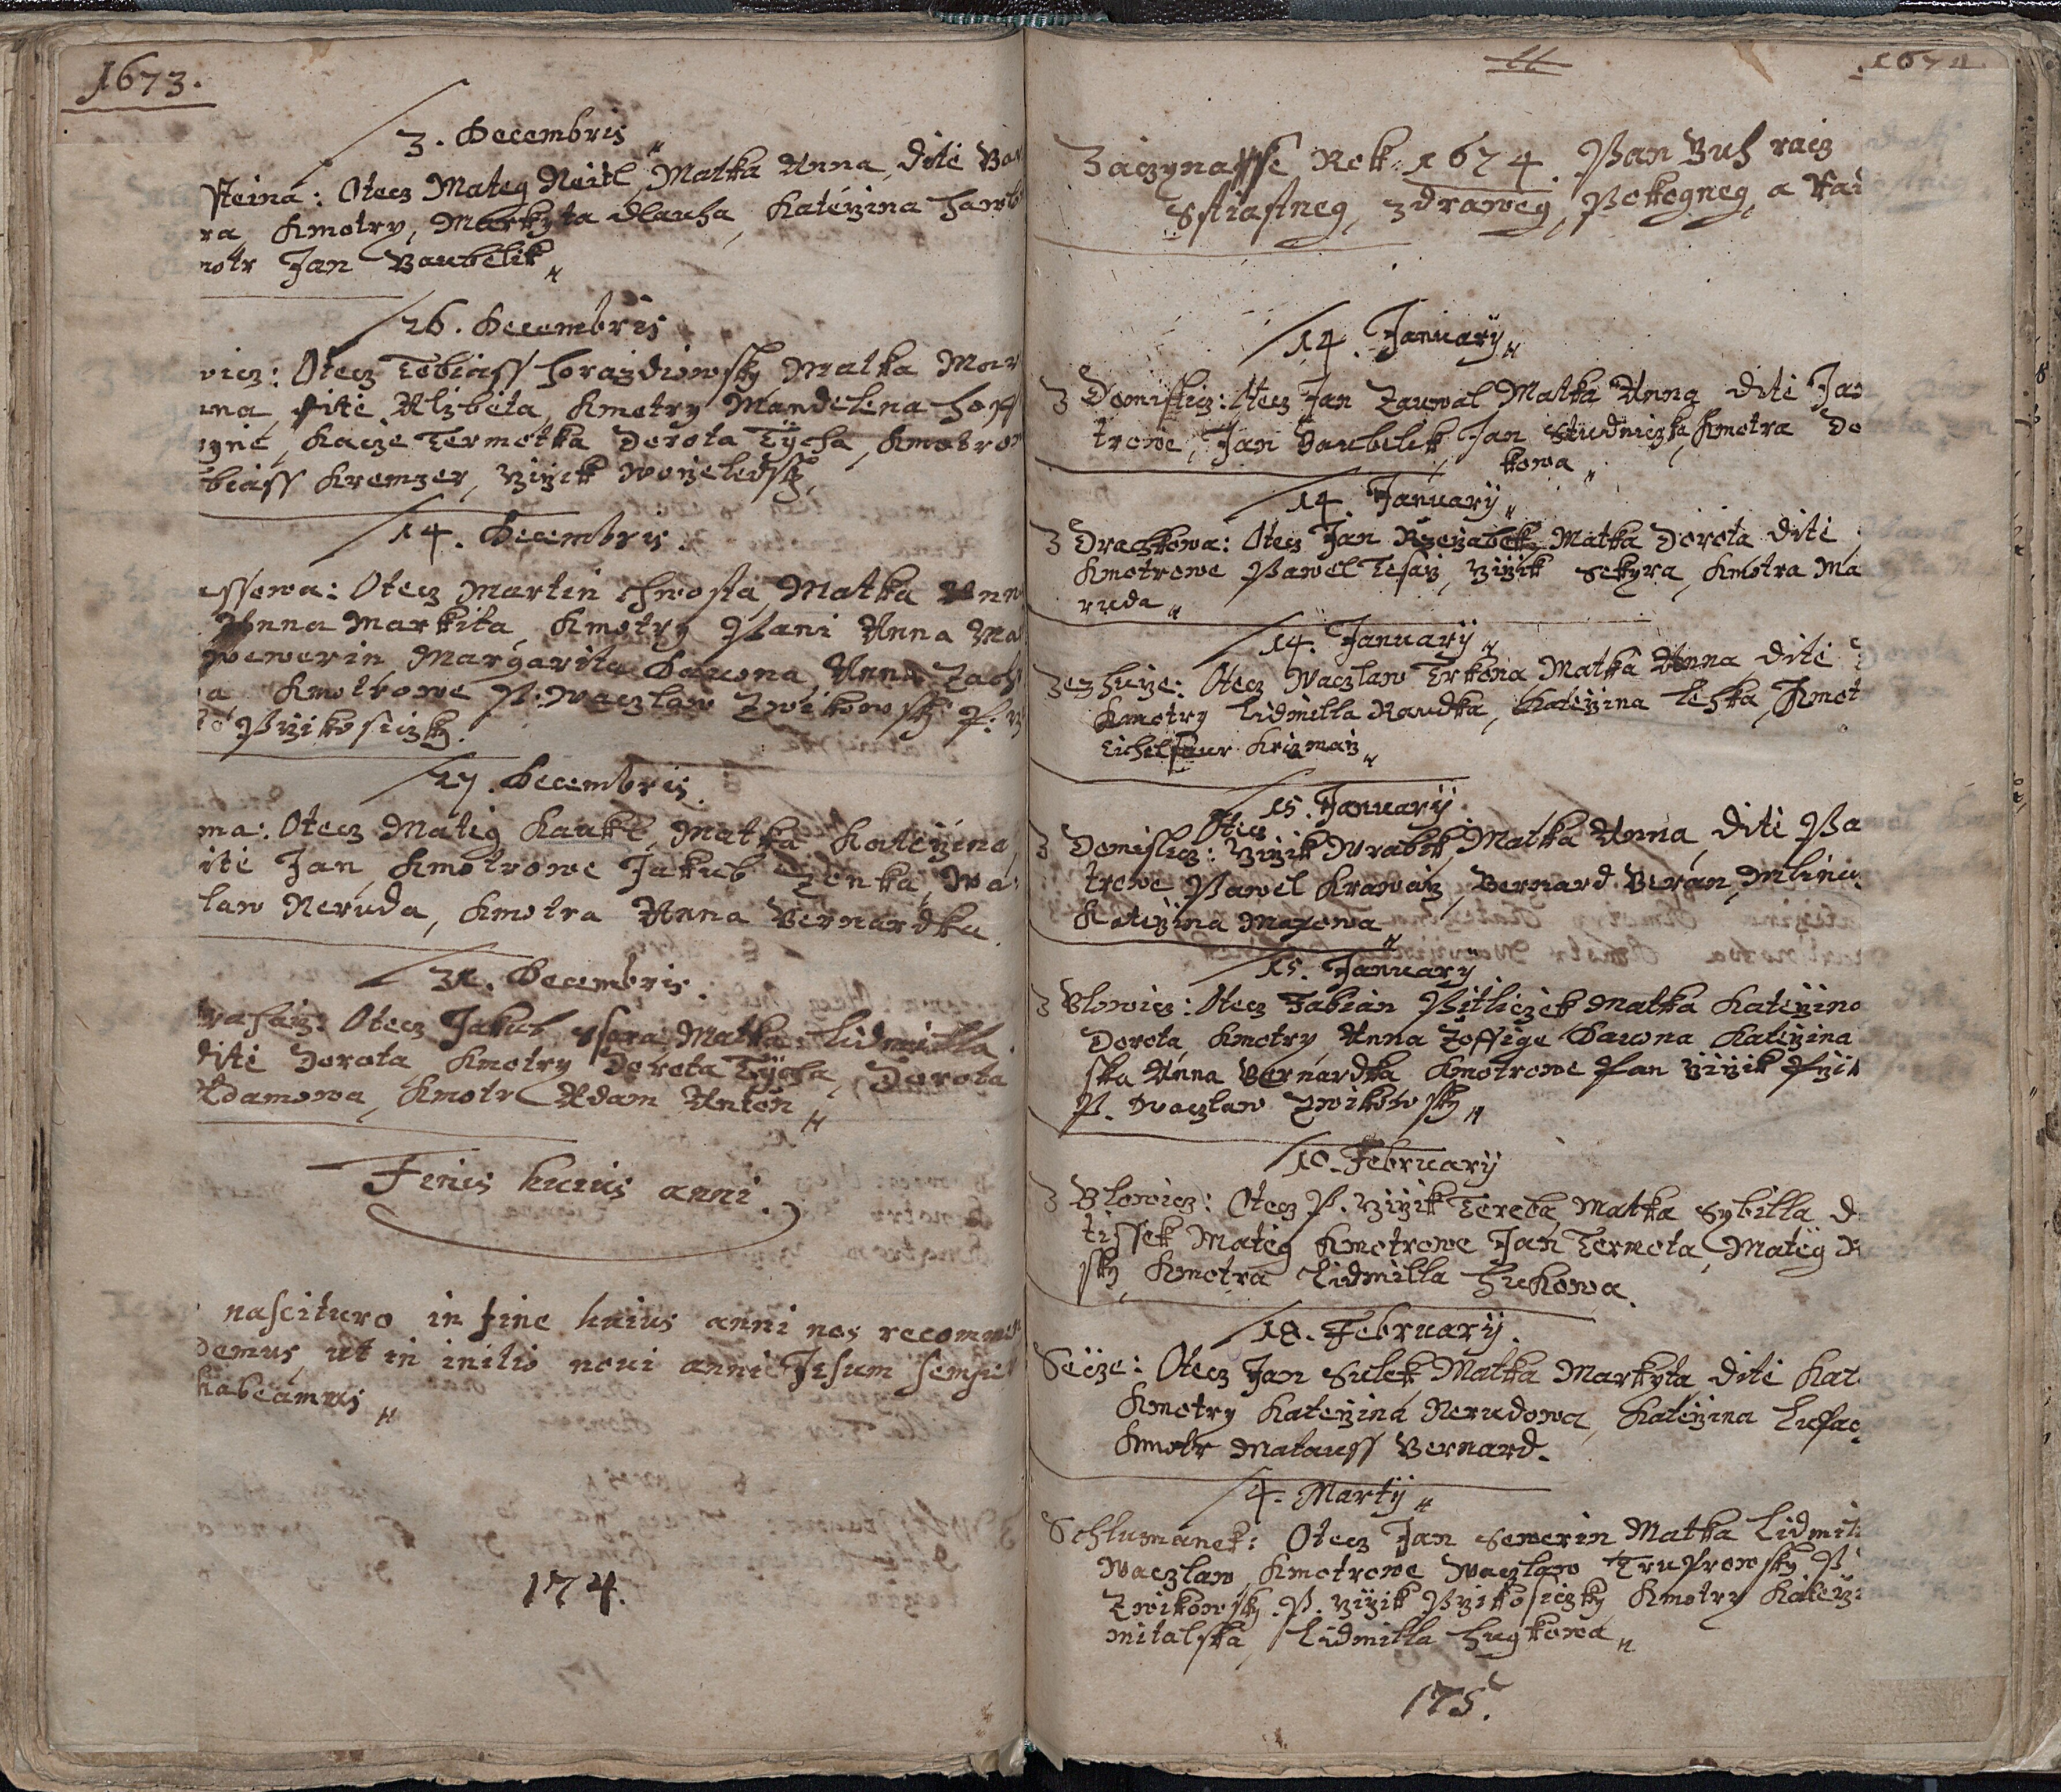 1673.
3. Decembris
steina: Otecz Mateg Neitl, Matka Anna, dite Bar
ra Kmotry, Markyta dlauha, Katerzina
motr Jan Baubelik
26. Decembris
wicz: Otecz Tobiass Horazdiowsky Matka Mar
ana, dite Alzbeta, Kmotry Mandelina Hoff
Kacze Termotka Dorota Tycha, Kmotrow
biass Kremzer,
14. Decembris.
essowa: Otecz Martin Chwosta, Matka Ann
Anna Markita, Kmotry Pani Anna Ma
Sewerin Margarita Daucona, Anna Zach
a Kmotrowe P. Waczlaw Zwikowsky P.
Przikosiczky.
27. Decembris.
ma: Otecz Mateg Kaukl, Matka Katerzina,
ite Jan, Kmotrowe Jakub Zienka, Wa
law Neruda, Kmotra Anna Bernardka.
31. Decembris.
Otecz Jakub Matka Lidmilla
dite Dorota Kmotry Dorota Tycha, Dorota
Adamowa, Kmotr Adam Anton
Finis huius anni.
nascituro in fine huius anni nos recommen
demus, ut in initio noui anni Jesum semper
habeamus
174.
1674
Zaczynasse Rok 1674. Pan Buh racz
Sstiastneg, zdraweg, Pokogneg, a
14. Januarij
Z Domislicz: Otecz Jan Zauwal Matka Anna dite Jan
trowe, Jan Baubelik, Jan Studniczka, Kmotra Do
kowa
14. Januarij
Z Draczkowa: Otecz Jan Rzerzabek Matka Dorota dite
Kmotrowe Pawel Tesarz, Girzik Sekyra, Kmotra Ma
ruda
14. Januarij
Otecz Waczlaw Trkona Matka Anna dite
Kmotry Lidmilla Raudka, Katerzina Leska, Kmot
15. Januarij
Otecz
Z Domislicz: Girzik Wrabik, Matka Anna, dite Pa
trowe Pawel Krawarz, Bernard Beran, Mlinu
Katerzina Maxowa
15. Januarij
Z Blowicz: Otecz Fabian Pitliczek Matka Katerzina
Dorota, Kmotry Anna Zoffige Daucona Katerzina
ska Anna Bernardka, Kmotrowe Pan Girzik Przik
P. Waczlaw Zwikowsky
10. February
Z Blowicz: Otecz P. Girzik Tereba, Matka Sybilla d
tissek Mateg Kmotrowe Jan Termota, Mateg R
sky, Kmotra Lidmilla Hukowa.
18. February.
Otecz Jan Sulek Matka Markyta dite Kat
Kmotry Katerzina Nerudowa, Katerzina
Kmotr Matauss Bernard.
4. Martij
Schlumanek: Otecz Jan Sewerin Matka Lidmil
Waczlaw, Kmotrowe Waczlaw P.
Zwikowsky, P. Girzik Przikosiczky, Kmotry Katerzi
mitalska, Lidmilla Hugkowa
175.